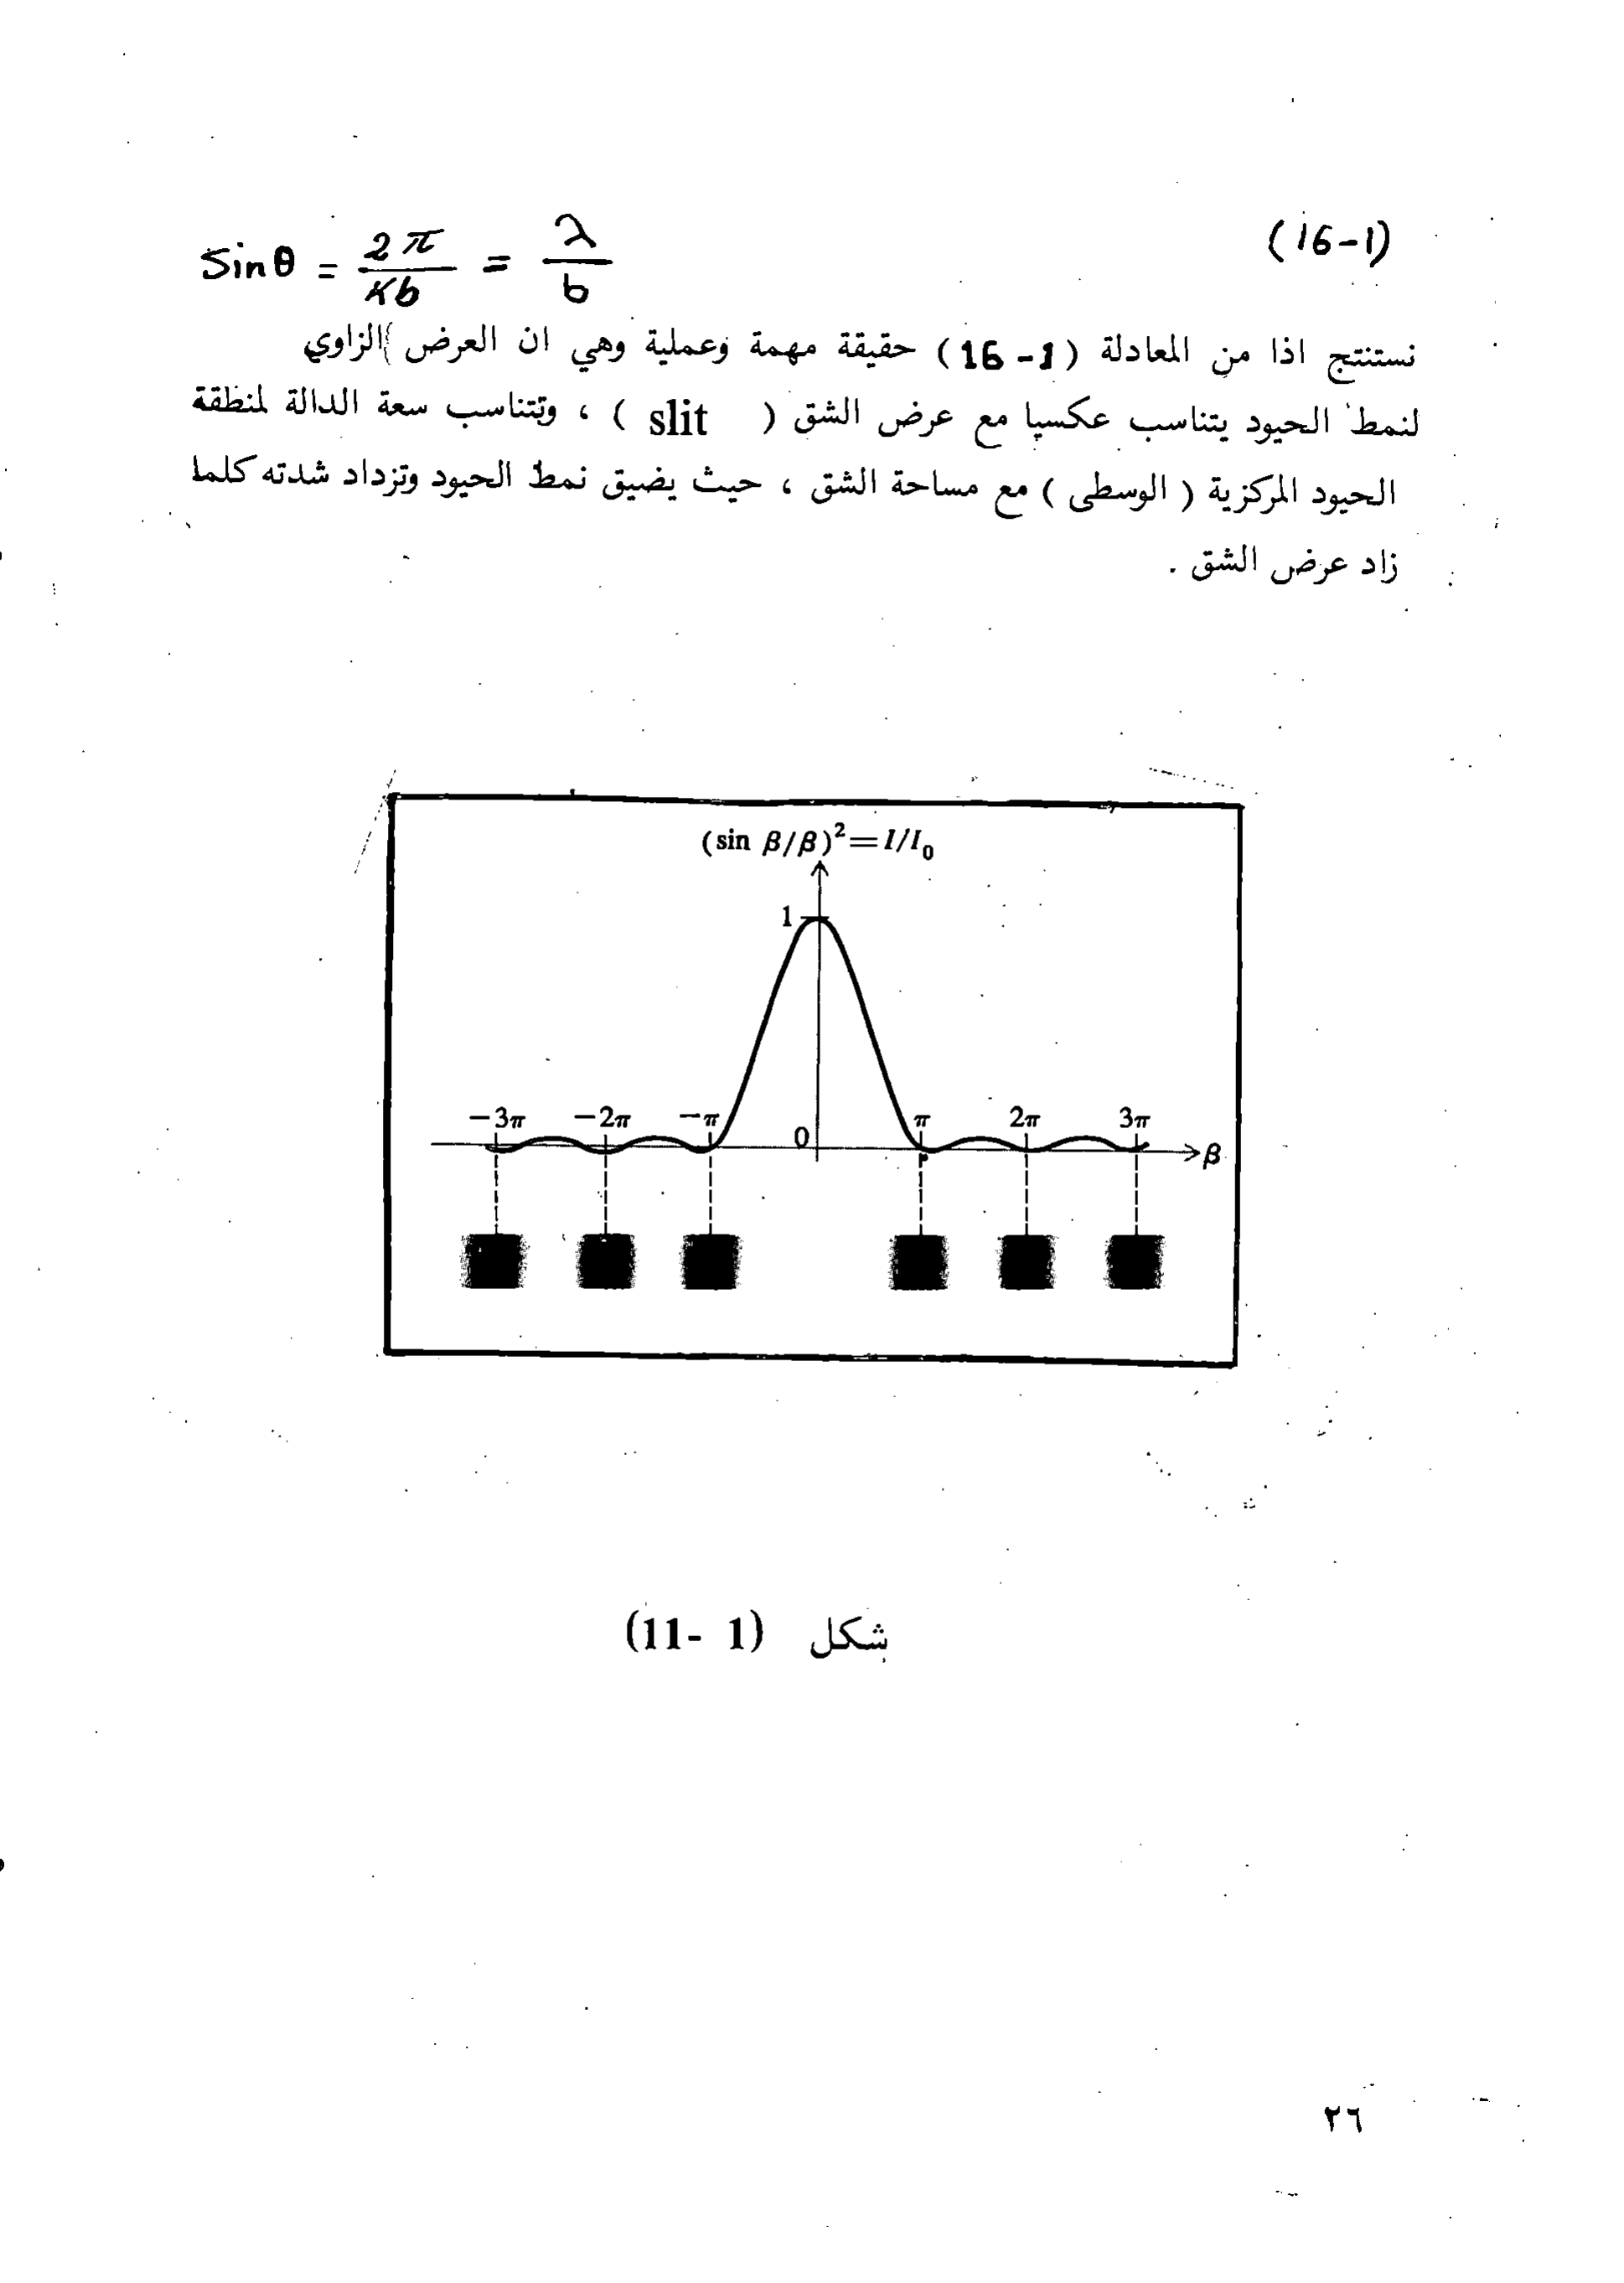 Sinθ = 2π/Kb = λ/b (16-1)
نستنتج اذا من المعادلة (16-1) حقيقة مهمة وعملية وهي ان العرض الزاوي
لنمط الحيود يتناسب عكسيا مع عرض الشق ( slit ) ، وتتناسب سعة الدالة لمنطقة
الحيود المركزية ( الوسطى ) مع مساحة الشق ، حيث يضيق نمط الحيود وتزداد شدته كلما
زاد عرض الشق .
(sin β/β)²=I/I₀
1
−3π −2π −π 0 π 2π 3π
β
شكل (11- 1)
٢٦